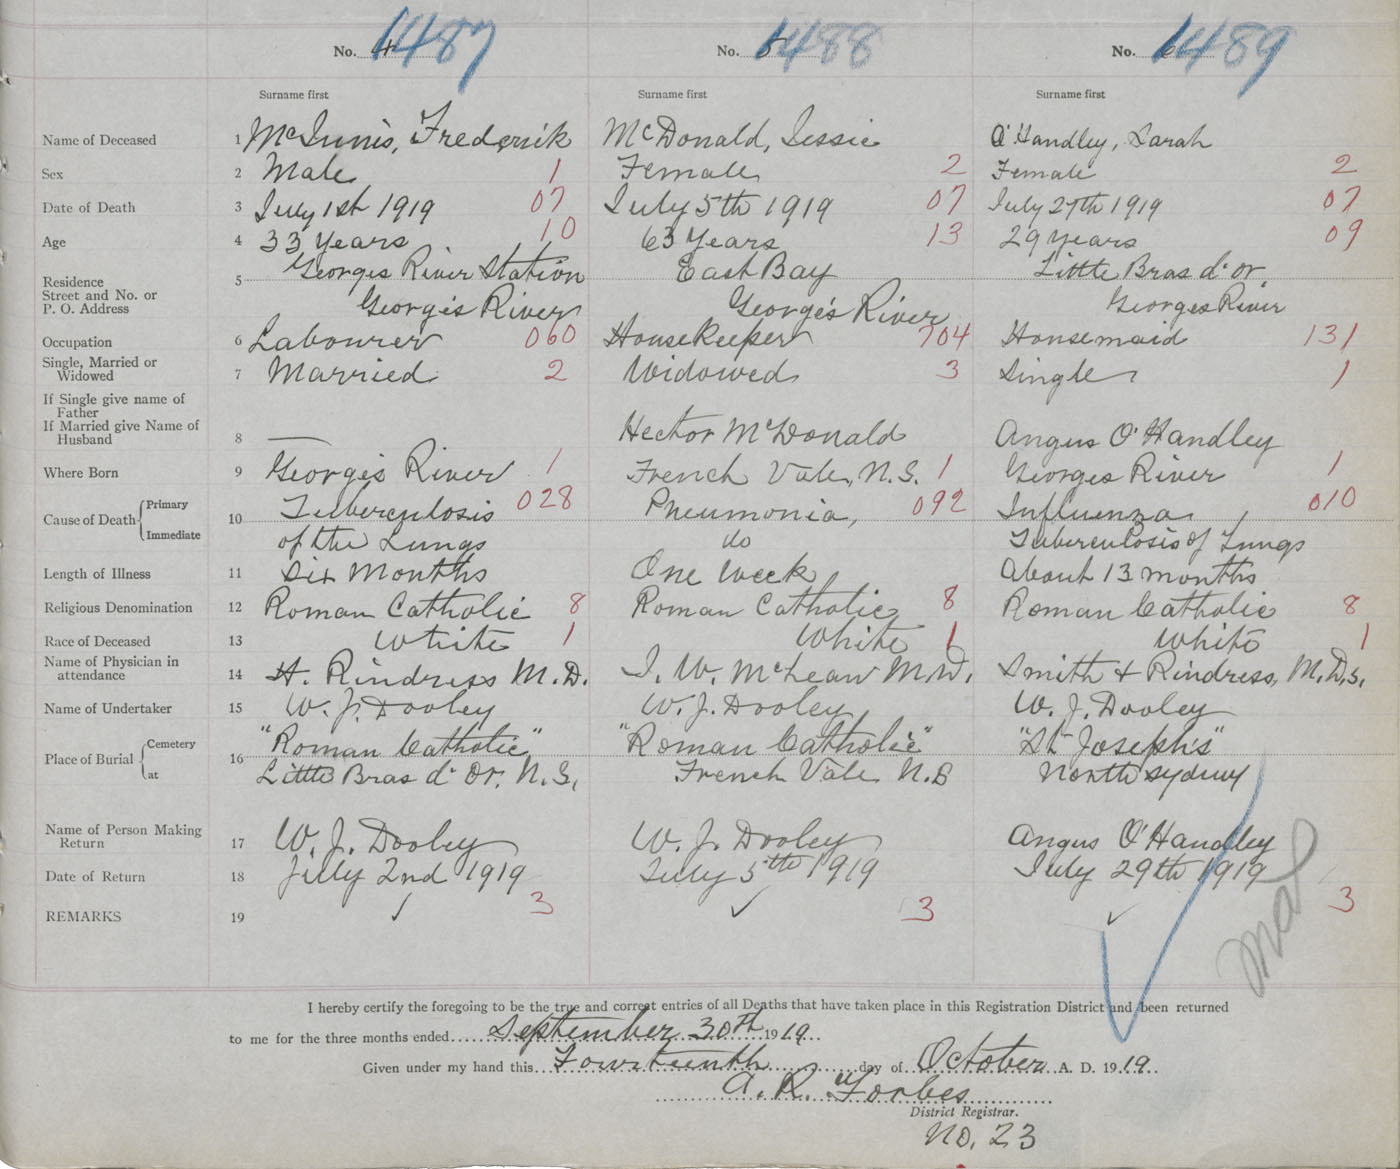 No. 4 1487 No. 5 1488 No. 6 1489
Surname first Surname first Surname first
Name of Deceased 1 McInnis, Frederik McDonald, Jessie O'Handley, Sarah
Sex 2 Male 1 Female 2 Female 2
Date of Death 3 July 1st 1919 07 July 5th 1919 07 July 27th 1919 07
Age 4 33 Years 10 63 Years 13 29 Years 09
Residence 5 Georges River Station East Bay Little Bras d'or,
Street and No. or
P. O. Address George's River George's River Georges River
Occupation 6 Labourer 060 Housekeeper 704 Housemaid 131
Single, Married or
Widowed 7 Married 2 Widowed 3 Single 1
If Single give name of
Father
If Married give Name of
Husband 8 — Hector McDonald Angus O'Handley
Where Born 9 George's River 1 French Vale, N.S. 1 Georges River 1
Cause of Death { Primary 10 Tuberculosis 028 Pneumonia, 092 Influenza 010
Immediate of the Lungs do Tuberculosis of Lungs
Length of Illness 11 Six Months One Week About 13 months
Religious Denomination 12 Roman Catholic 8 Roman Catholic 8 Roman Catholic 8
Race of Deceased 13 White 1 White 1 White 1
Name of Physician in
attendance 14 H. Rindress M.D. J. W. McLean M.D. Smith & Rindress, M.D.s.
Name of Undertaker 15 W. J. Dooley W. J. Dooley W. J. Dooley
Place of Burial { Cemetery 16 "Roman Catholic" "Roman Catholic" "St Joseph's"
at Little Bras d'Or, N.S. French Vale N.S North Sydney
Name of Person Making
Return 17 W. J. Dooley W. J. Dooley Angus O'Handley
Date of Return 18 July 2nd 1919 July 5th 1919 July 29th 1919
REMARKS 19 ✓ 3 ✓ 3 ✓ 3
I hereby certify the foregoing to be the true and correct entries of all Deaths that have taken place in this Registration District and been returned
to me for the three months ended September 30th 1919.
Given under my hand this Fourteenth day of October A. D. 1919.
A. R. Forbes
District Registrar.
No. 23